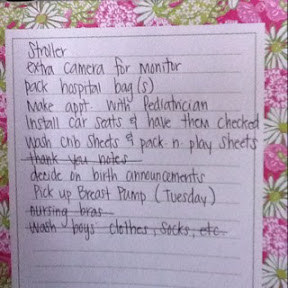 Stroller
extra camera for monitor
pack hospital bag(s)
Make appt. with Pediatrician
Install car seats & have them checked
wash crib sheets & pack n play sheets
thank you notes
decide on birth announcements
Pick up Breast Pump (Tuesday)
nursing bras
wash boys' clothes, socks, etc.